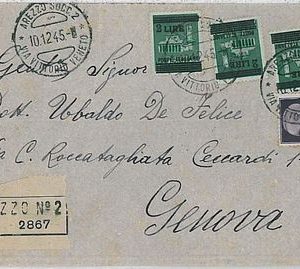 AREZZO SUCC. 2
10.12.45
VIA VITTORIO VENETO
2 LIRE
POSTE ITALIANE
2 LIRE
VITTORIO
Signor
Dott. Ubbaldo De Felice
Via C. Roccatagliata Ceccardi 1
Genova
ZZO Nº 2
2867